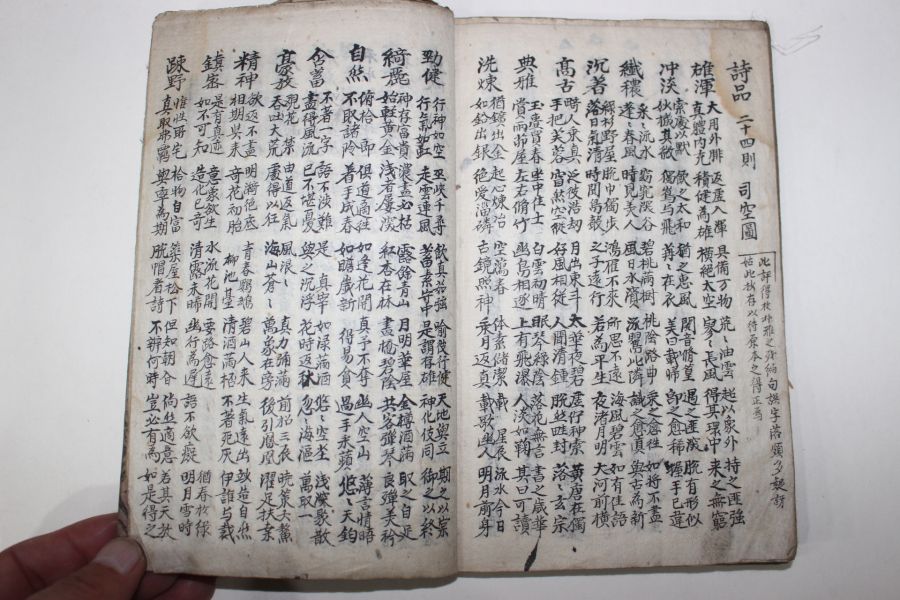 詩品 二十四則 司空圖
此評得於 句誤字落頗多疑訝
姑此抄存以待原本之得正焉
雄渾 大用外腓 返虛入渾 具備万物 荒〻油雲 超以象外 持之匪強
真體內充 積健為雄 橫絕太空 寥〻長風 得其環中 來之無窮
冲淡 素處以默 飮之太和 猶之惠風 閱音脩篁 遇之匪深 脫有形似
其微 鶴与飛 苒〻在衣 美曰載歸 卽之愈稀 握手已違
纖穠 采〻流水 窈窕深谷 碧桃滿樹 桃陰路曲 乘之愈往 如將不盡
蓬〻春風 時見美人 風日水濱 流鶯比隣 識之愈眞 與古為新
沉著 綠杉野屋 脫巾獨步 鴻雁不來 所思不遠 海風碧雲 如有佳語
落日氣清 時聞鳥聲 之子遠行 若為平生 夜渚月明 大河前橫
高古 畸人乘真 汎彼浩劫 月出東斗 太華夜碧 虛佇神素 黃唐在獨
手把芙蓉 窅然空蹤 好風相從 人聞清鍾 脫然畦封 落〻玄宗
典雅 玉壺買春 坐中佳士 白雲初晴 眠琴綠陰 落花無言 書之歲華
賞雨茆屋 左右脩竹 幽鳥相逐 上有飛瀑 人淡如菊 其曰可讀
洗煉 猶鑛出金 超心煉冶 空潭瀉春 体素儲潔 載瞻星辰 流水今日
如鉛出銀 絕愛淄磷 古鏡照神 乘月返真 載歌幽人 明月前身
勁健 行神如空 巫峽千尋 飮真茹強 喻彼行健 天地與立 期之以宲
行氣如虹 走雲連風 蓄素守中 是謂存雄 神化攸同 御之以終
綺麗 神存富貴 濃盡必枯 露餘青山 月明華屋 金樽酒滿 取之自足
始輕黃金 淺者屢深 紅杏在林 畵橋碧陰 共客彈琴 良殫美衿
自然 俯拾卽 俱道適往 如逢花開 真予不奪 幽人空山 薄言情晤
不取諸隣 着手成春 如瞻歲新 得易貪 過雨采蘋 悠〻天鈞
含蓄 不著一字 語不涉難 是 真宰 如淥滿酒 悠〻空塵 淺深聚散
盡得風流 已不堪憂 與之沉浮 花時返秋 忽〻海漚 萬取一
豪放 觀花 禁 由道返氣 風浪〻 真力彌滿 前招三辰 曉策六鰲
吞吐大荒 處得以狂 海山蒼〻 萬象在旁 後引鳳凰 濯足扶桑
精神 欲返不盡 明漪絕底 青春鸚鵡 碧山人來 生氣遠出 妙造自然
相期與來 奇花初胎 柳池臺 清酒滿杯 不著死灰 伊誰與裁
縝密 是有真迹 意象欲生 水流花開 要路愈遠 語不欲 猶春於綠
如不可知 造化已奇 清露未晞 幽行為遲 語不欲癡 明月雪時
疎野 惟性所宅 拾物自富 築屋松下 但知朝昏 倘然適意 若其天放
真取弗羈 與率為期 脫帽看詩 不辨何時 豈必有為 如是得之